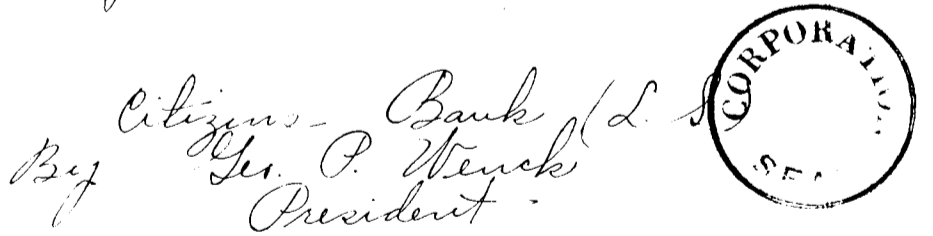 Citizens Bank (L. S
By Geo. P. Wenck
President.
CORPORATION
SEAL